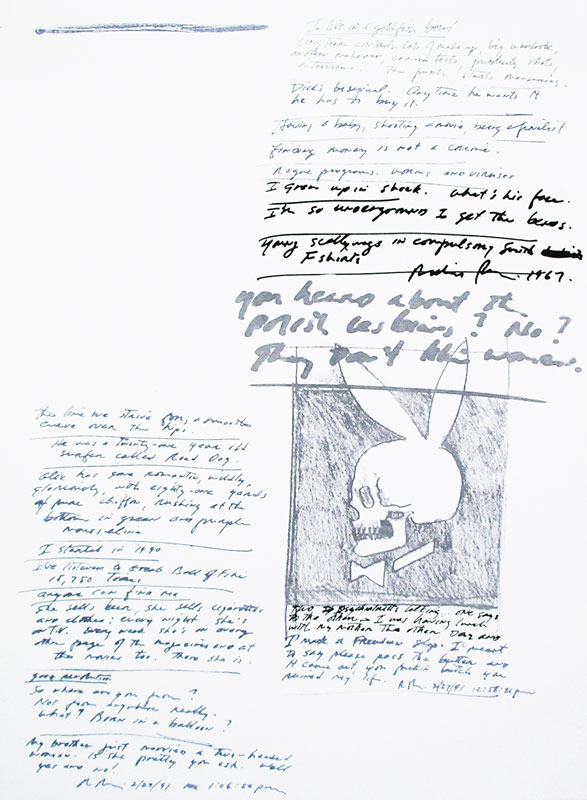 I live in a goldfish bowl
Long term contracts. Lots of makeup, big wardrobe,
another makeover, camera tests, publicity shots,
interviews. The public starts
Dick's bisexual. Anytime he wants it
he has to buy it.
Having a baby, shooting a movie, being a finalist
Finding money is not a crime.
Rogue programs. Worms and viruses
I grew up in shock. What's his face.
I'm so underground I get the bends.
Young scallywags in compulsory Smith
T shirts
1967.
you heard about the
Polish lesbians? No?
They don't like women.
The line we strive for; a smoother
curve over the hips.
He was a twenty-one year old
surfer called Road Dog.
has gone romantic, wildly,
gloriously, with eighty-one yards
of pure chiffon, rushing at the
bottom in green and purple
mousseline
I started in 1990
I've listened to Great Balls of Fire
15,750 Times
anyone can find me
She sells beer, she sells cigarettes
and clothes; every night she's
on T.V. Every week she's on every
other page of the magazines and at
the movies too. There she is.
revolution
So where are you from?
Not from anywhere really.
What? Born in a balloon?
My brother just married a two-headed
woman. Is she pretty you ask. Well
yes and no!
2/27/91 1:06:50 pm
Two psychiatrists talking... one says
to the other - I was having lunch
with my mother the other day and
I made a Freudian slip. I meant
to say please pass the butter and
it came out you fuckin bitch you
ruined my life. 2/27/91 12:58:36 pm